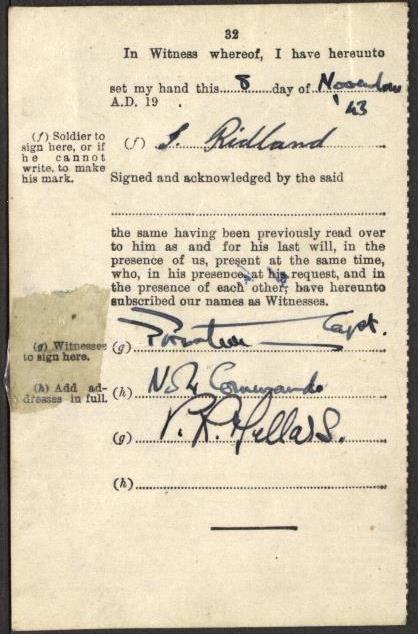 32
In Witness whereof, I have hereunto
set my hand this 8 day of November
A.D. 19 . '43
(f) Soldier to
sign here, or if
he cannot
write, to make
his mark.
(f) J. Ridland
Signed and acknowledged by the said
the same having been previously read over
to him as and for his last will, in the
presence of us, present at the same time,
who, in his presence, at his request, and in
the presence of each other, have hereunto
subscribed our names as Witnesses.
(g) Witnesses
to sign here.
(g) Capt.
(h) Add ad-
dresses in full.
(h) No 4 Commando
(g)
(h)